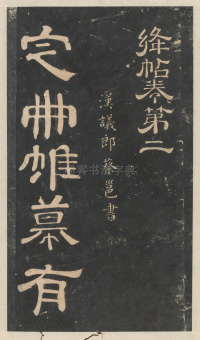 絳帖卷第二
漢議郎蔡邕書
定冊帷幕有